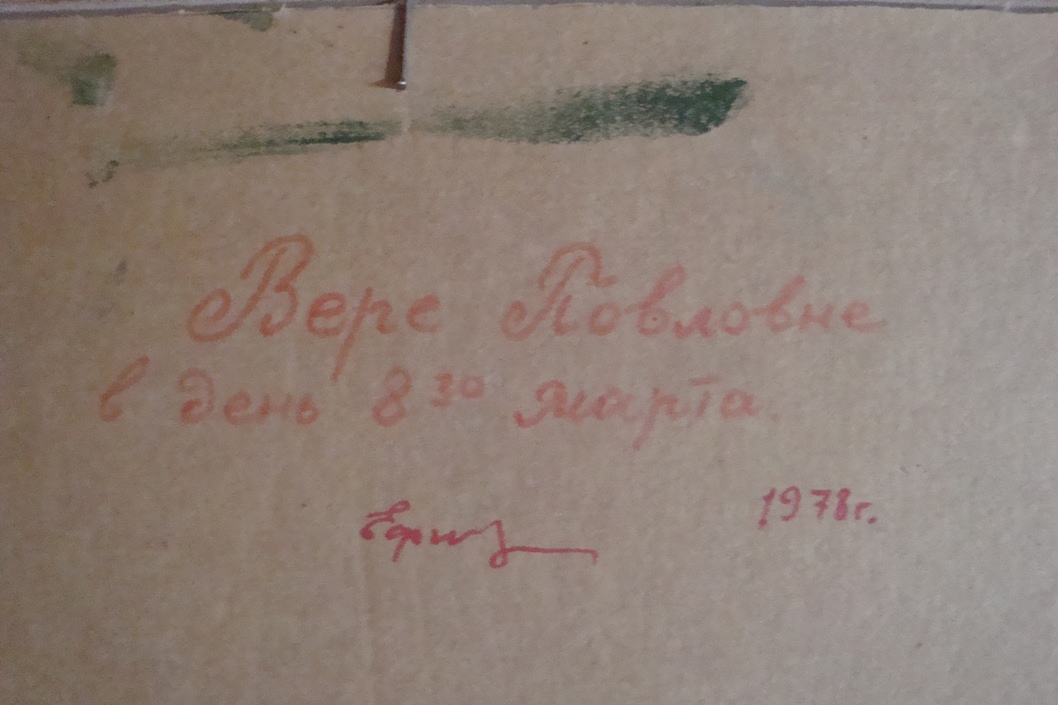 Вере Павловне
в день 8го марта.
1978г.